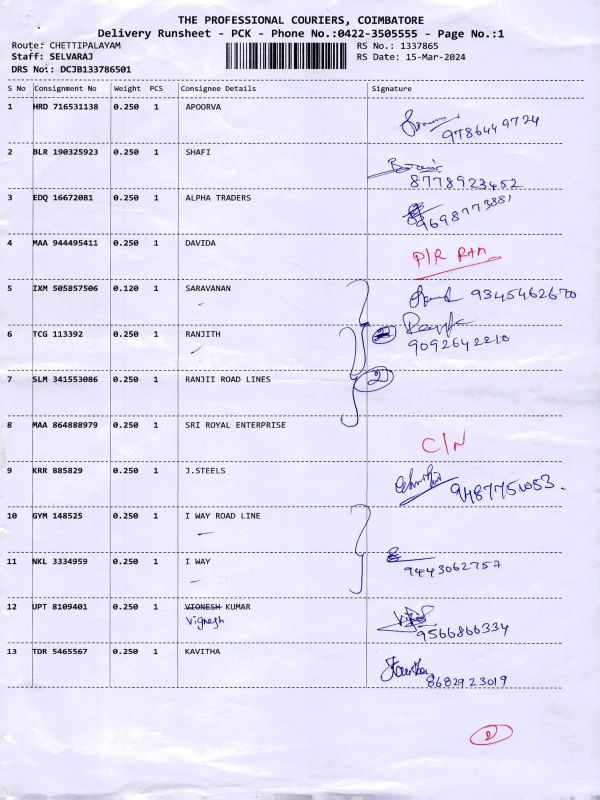 THE PROFESSIONAL COURIERS, COIMBATORE
Delivery Runsheet - PCK - Phone No.:0422-3505555 - Page No.:1
Route: CHETTIPALAYAM RS No.: 1337865
Staff: SELVARAJ RS Date: 15-Mar-2024
DRS No.: DCJB133786501
S No Consignment No Weight PCS Consignee Details Signature
1 HRD 716531138 0.250 1 APOORVA
9786449724
2 BLR 190325923 0.250 1 SHAFI
8778923452
3 EDQ 16672081 0.250 1 ALPHA TRADERS
9698773881
4 MAA 944495411 0.250 1 DAVIDA
P/R
5 IXM 505857506 0.120 1 SARAVANAN 9345462670
6 TCG 113392 0.250 1 RANJITH 2
9092642210
7 SLM 341553086 0.250 1 RANJII ROAD LINES 2
8 MAA 864888979 0.250 1 SRI ROYAL ENTERPRISE
C/N
9 KRR 885829 0.250 1 J.STEELS
10 GYM 148525 0.250 1 I WAY ROAD LINE
11 NKL 3334959 0.250 1 I WAY
9443062757
12 UPT 8109401 0.250 1 VIONESH KUMAR
Vignesh
9566866334
13 TDR 5465567 0.250 1 KAVITHA
8682923019
2